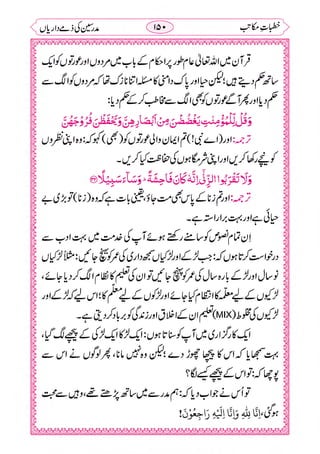 خطباتِ مکاتب ۱۵۰ مدرسین کی ذمے داریاں
قرآن میں اللہ تعالیٰ عام طور پر احکام کے باب میں مردوں اور عورتوں کو ایک
ساتھ حکم دیتے ہیں؛ لیکن حیا اور پاک دامنی کا مسئلہ اتنا نازک تھا کہ مردوں کو الگ سے
حکم دیا اور آگے پھر عورتوں کو بھی الگ سے مخاطب کر کے حکم دیا:
وَقُلْ لِّلْمُؤْمِنٰتِ يَغْضُضْنَ مِنْ اَبْصَارِهِنَّ وَيَحْفَظْنَ فُرُوْجَهُنَّ
ترجمہ: اور (اے نبی!) تم ایمان والی عورتوں کو (بھی) کہو کہ: وہ اپنی نظروں
کو نیچے رکھا کریں اور اپنی شرم گاہوں کی حفاظت کیا کریں۔
وَلَا تَقْرَبُوا الزِّنٰٓى اِنَّهٗ كَانَ فَاحِشَةً ۭ وَسَآءَ سَبِيْلًا
ترجمہ: اور تم زنا کے پاس بھی مت جاؤ، یقینی بات ہے کہ وہ (زنا) تو بڑی بے
حیائی ہے اور بہت ہی برا راستہ ہے۔
اِن تمام نصوص کو سامنے رکھتے ہوئے آپ کی خدمت میں بہت ہی ادب سے
درخواست کرتا ہوں کہ: جب لڑکے اور لڑکیاں سمجھ داری کی عمر کو پہنچ جائیں: مثلاً لڑکیاں
نو سال اور لڑکے بارہ سال کی عمر کو پہنچ جائیں تو ان کی تعلیم کا نظام الگ کر دیا جائے،
لڑکیوں کے لیے معلمہ کا انتظام کیا جائے اور لڑکوں کے لیے معلم کا؛ اس لیے کہ لڑکے اور
لڑکیوں کی مخلوط (MIX) تعلیم ان کے اخلاق اور زندگی کو برباد کر دیتی ہے۔
ایک کارگزاری میں آپ کو سناتا ہوں: ایک لڑکا ایک لڑکی کے پیچھے لگ گیا،
بہت سمجھایا کہ اس کا پیچھا چھوڑ دے؛ لیکن وہ نہیں مانا، پھر لوگوں نے اس سے
پوچھا کہ: تو اس کے پیچھے کیسے لگا؟
تو اُس نے جواب دیا کہ: ہم مدرسے میں ساتھ پڑھتے تھے، وہیں سے محبت
ہو گئی، اِنَّا لِلّٰہِ وَاِنَّا اِلَیْہِ رَاجِعُوْنَ!